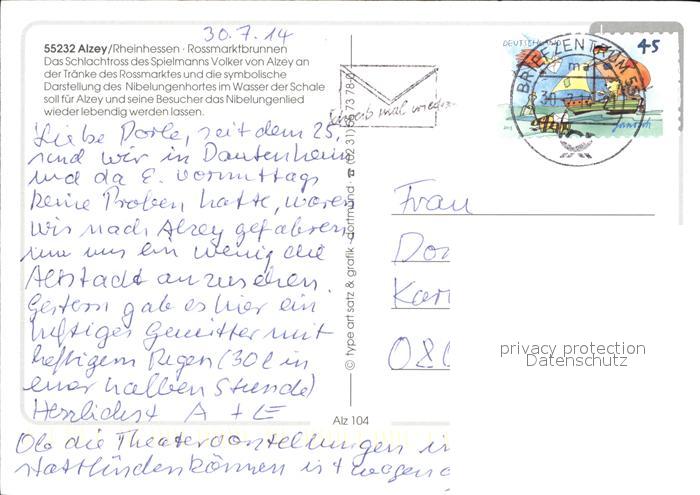 30.7.14
55232 Alzey/Rheinhessen · Rossmarktbrunnen
Das Schlachtross des Spielmanns Volker von Alzey an
der Tränke des Rossmarktes und die symbolische
Darstellung des Nibelungenhortes im Wasser der Schale
soll für Alzey und seine Besucher das Nibelungenlied
wieder lebendig werden lassen.
Liebe Dorle, seit dem 25.
sind wir in Dautenheim
und da E. vormittags
keine Proben hatte, waren
wir nach Alzey gefahren
um uns ein wenig die
Altstadt anzusehen.
Gestern gab es hier ein
heftiges Gewitter mit
heftigem Regen (30l in
einer halben Stunde)
Herzlichst A + E
Ob die Theatervorstellungen
stattfinden können ist
© type art satz & grafik · dortmund · ☎ (02 31)
Alz 104
DEUTSCHLAND
45
Janosch
BRIEFZENTRUM
Schreib mal wieder
Frau
Do
Kar
privacy protection
Datenschutz